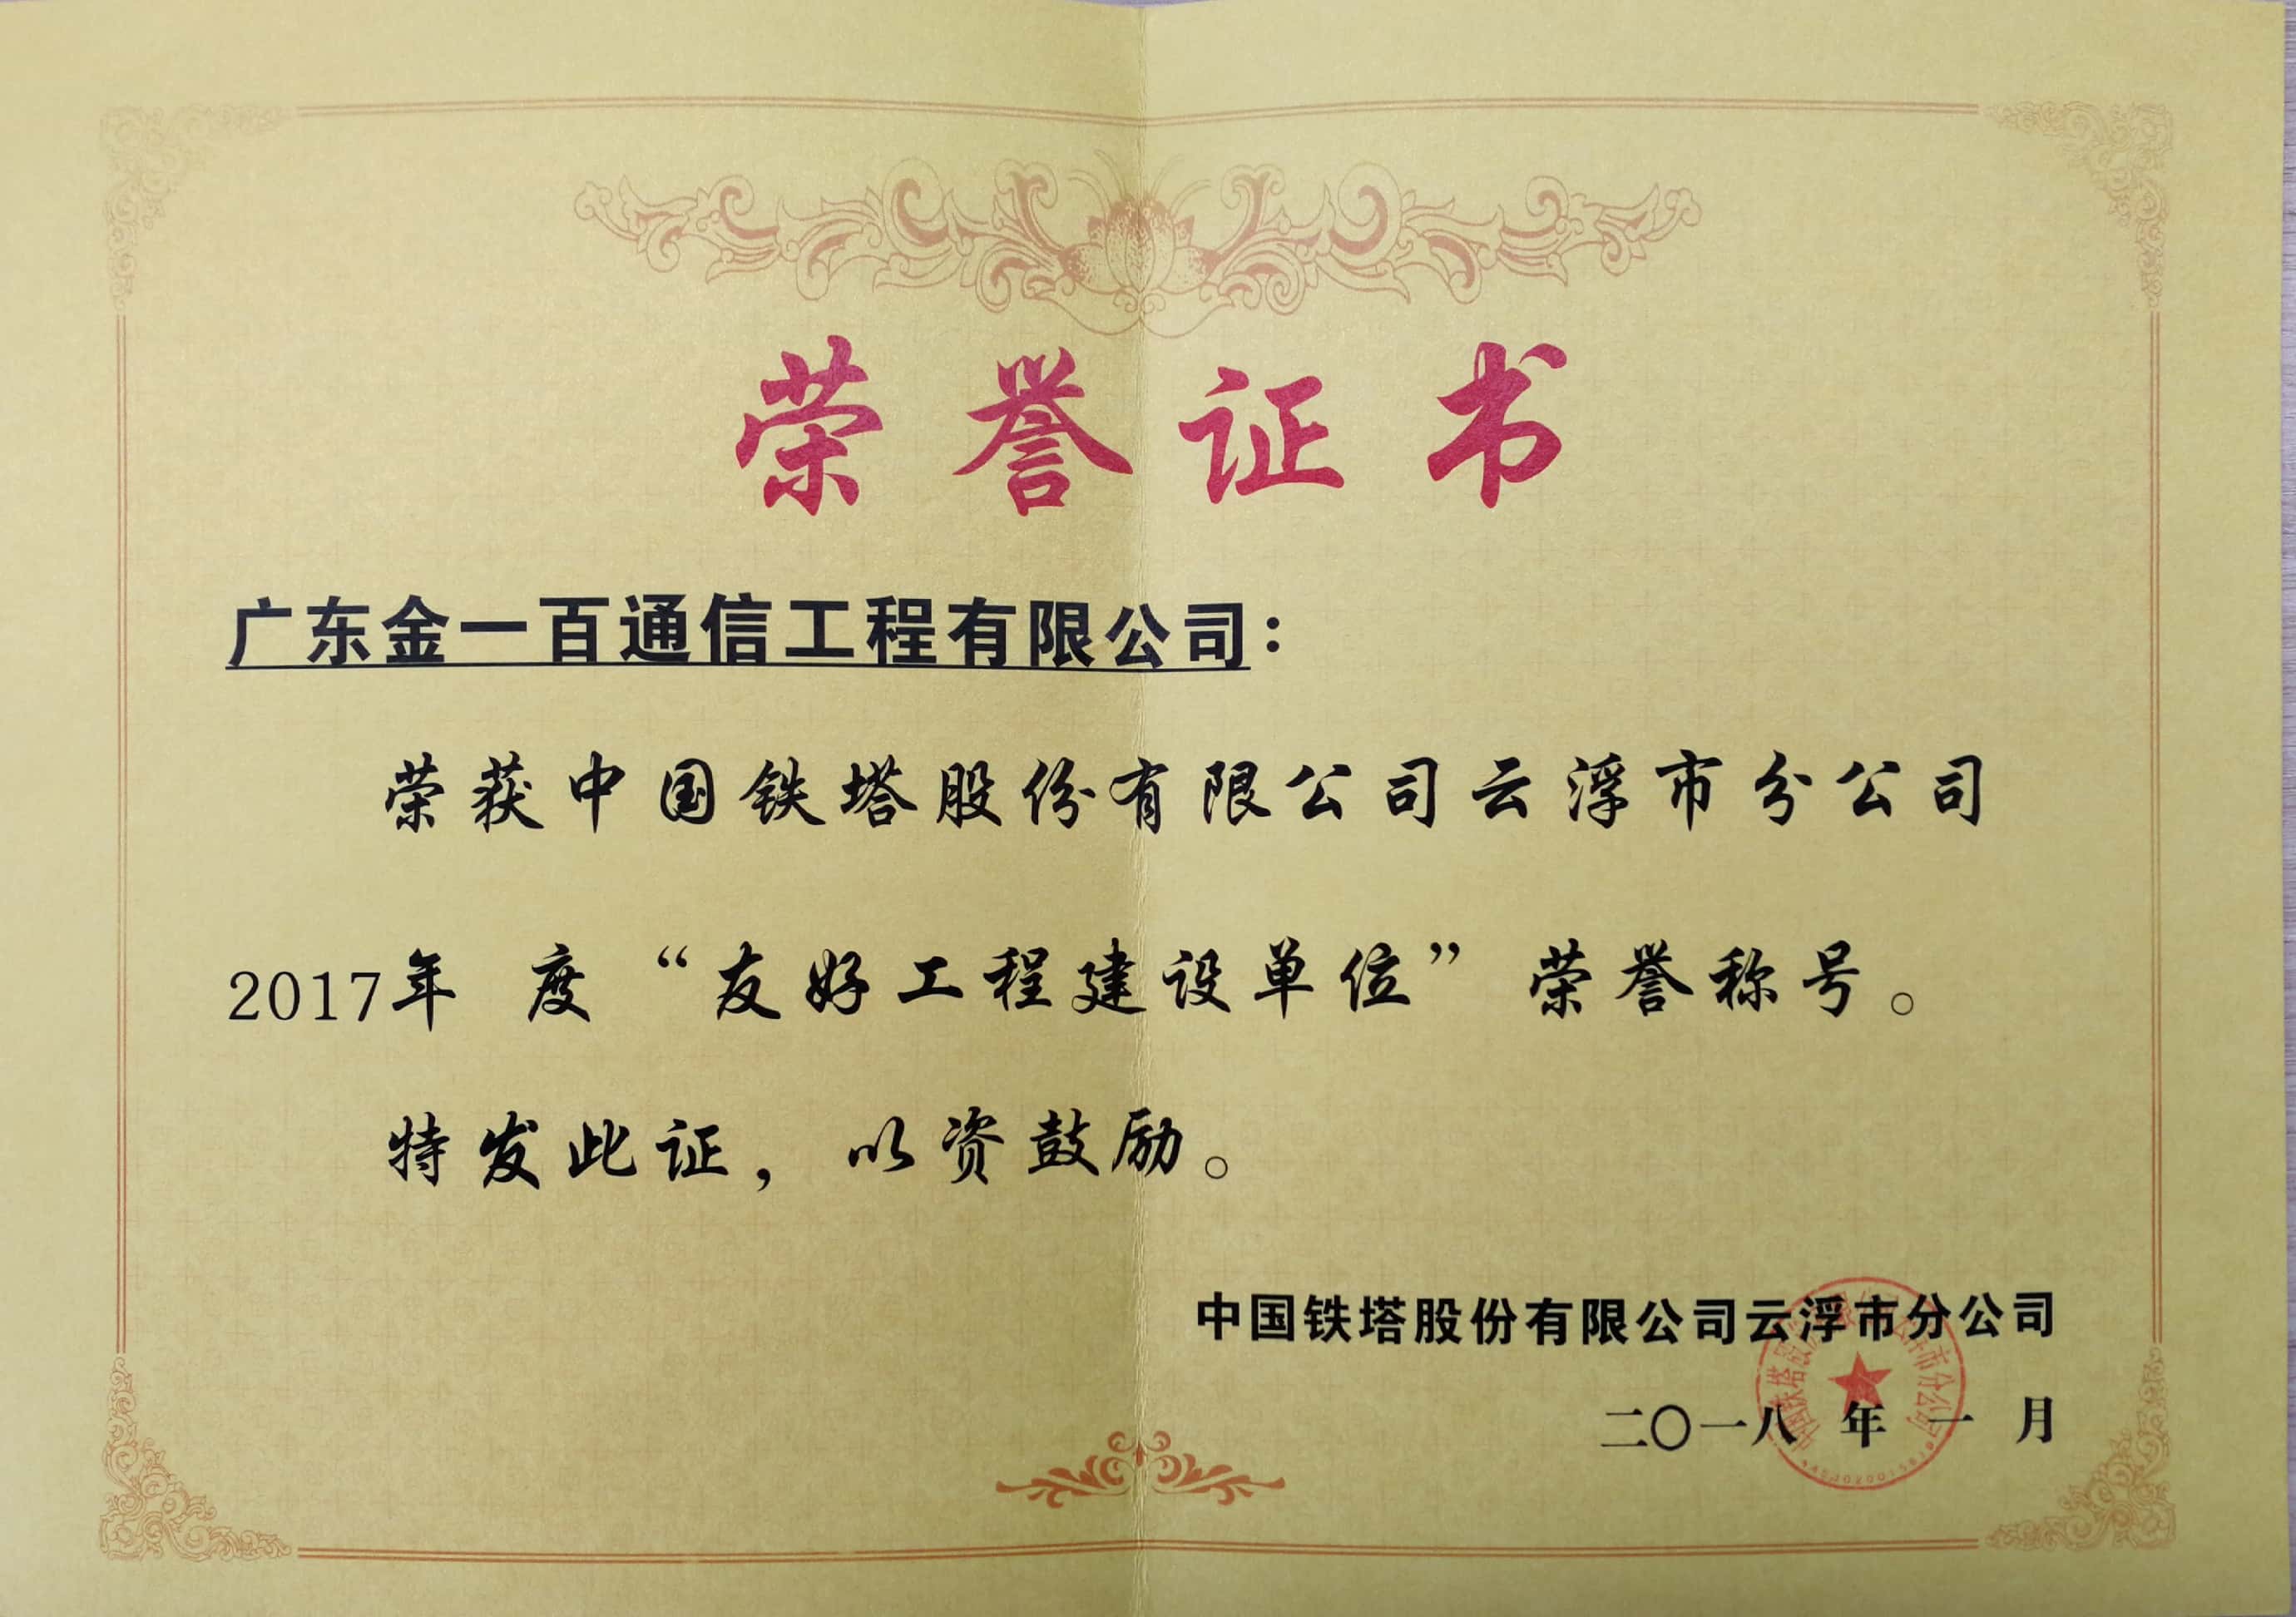 荣誉证书
广东金一百通信工程有限公司：
荣获中国铁塔股份有限公司云浮市分公司
2017年 度“友好工程建设单位”荣誉称号。
特发此证，以资鼓励。
中国铁塔股份有限公司云浮市分公司
二〇一八 年 一 月